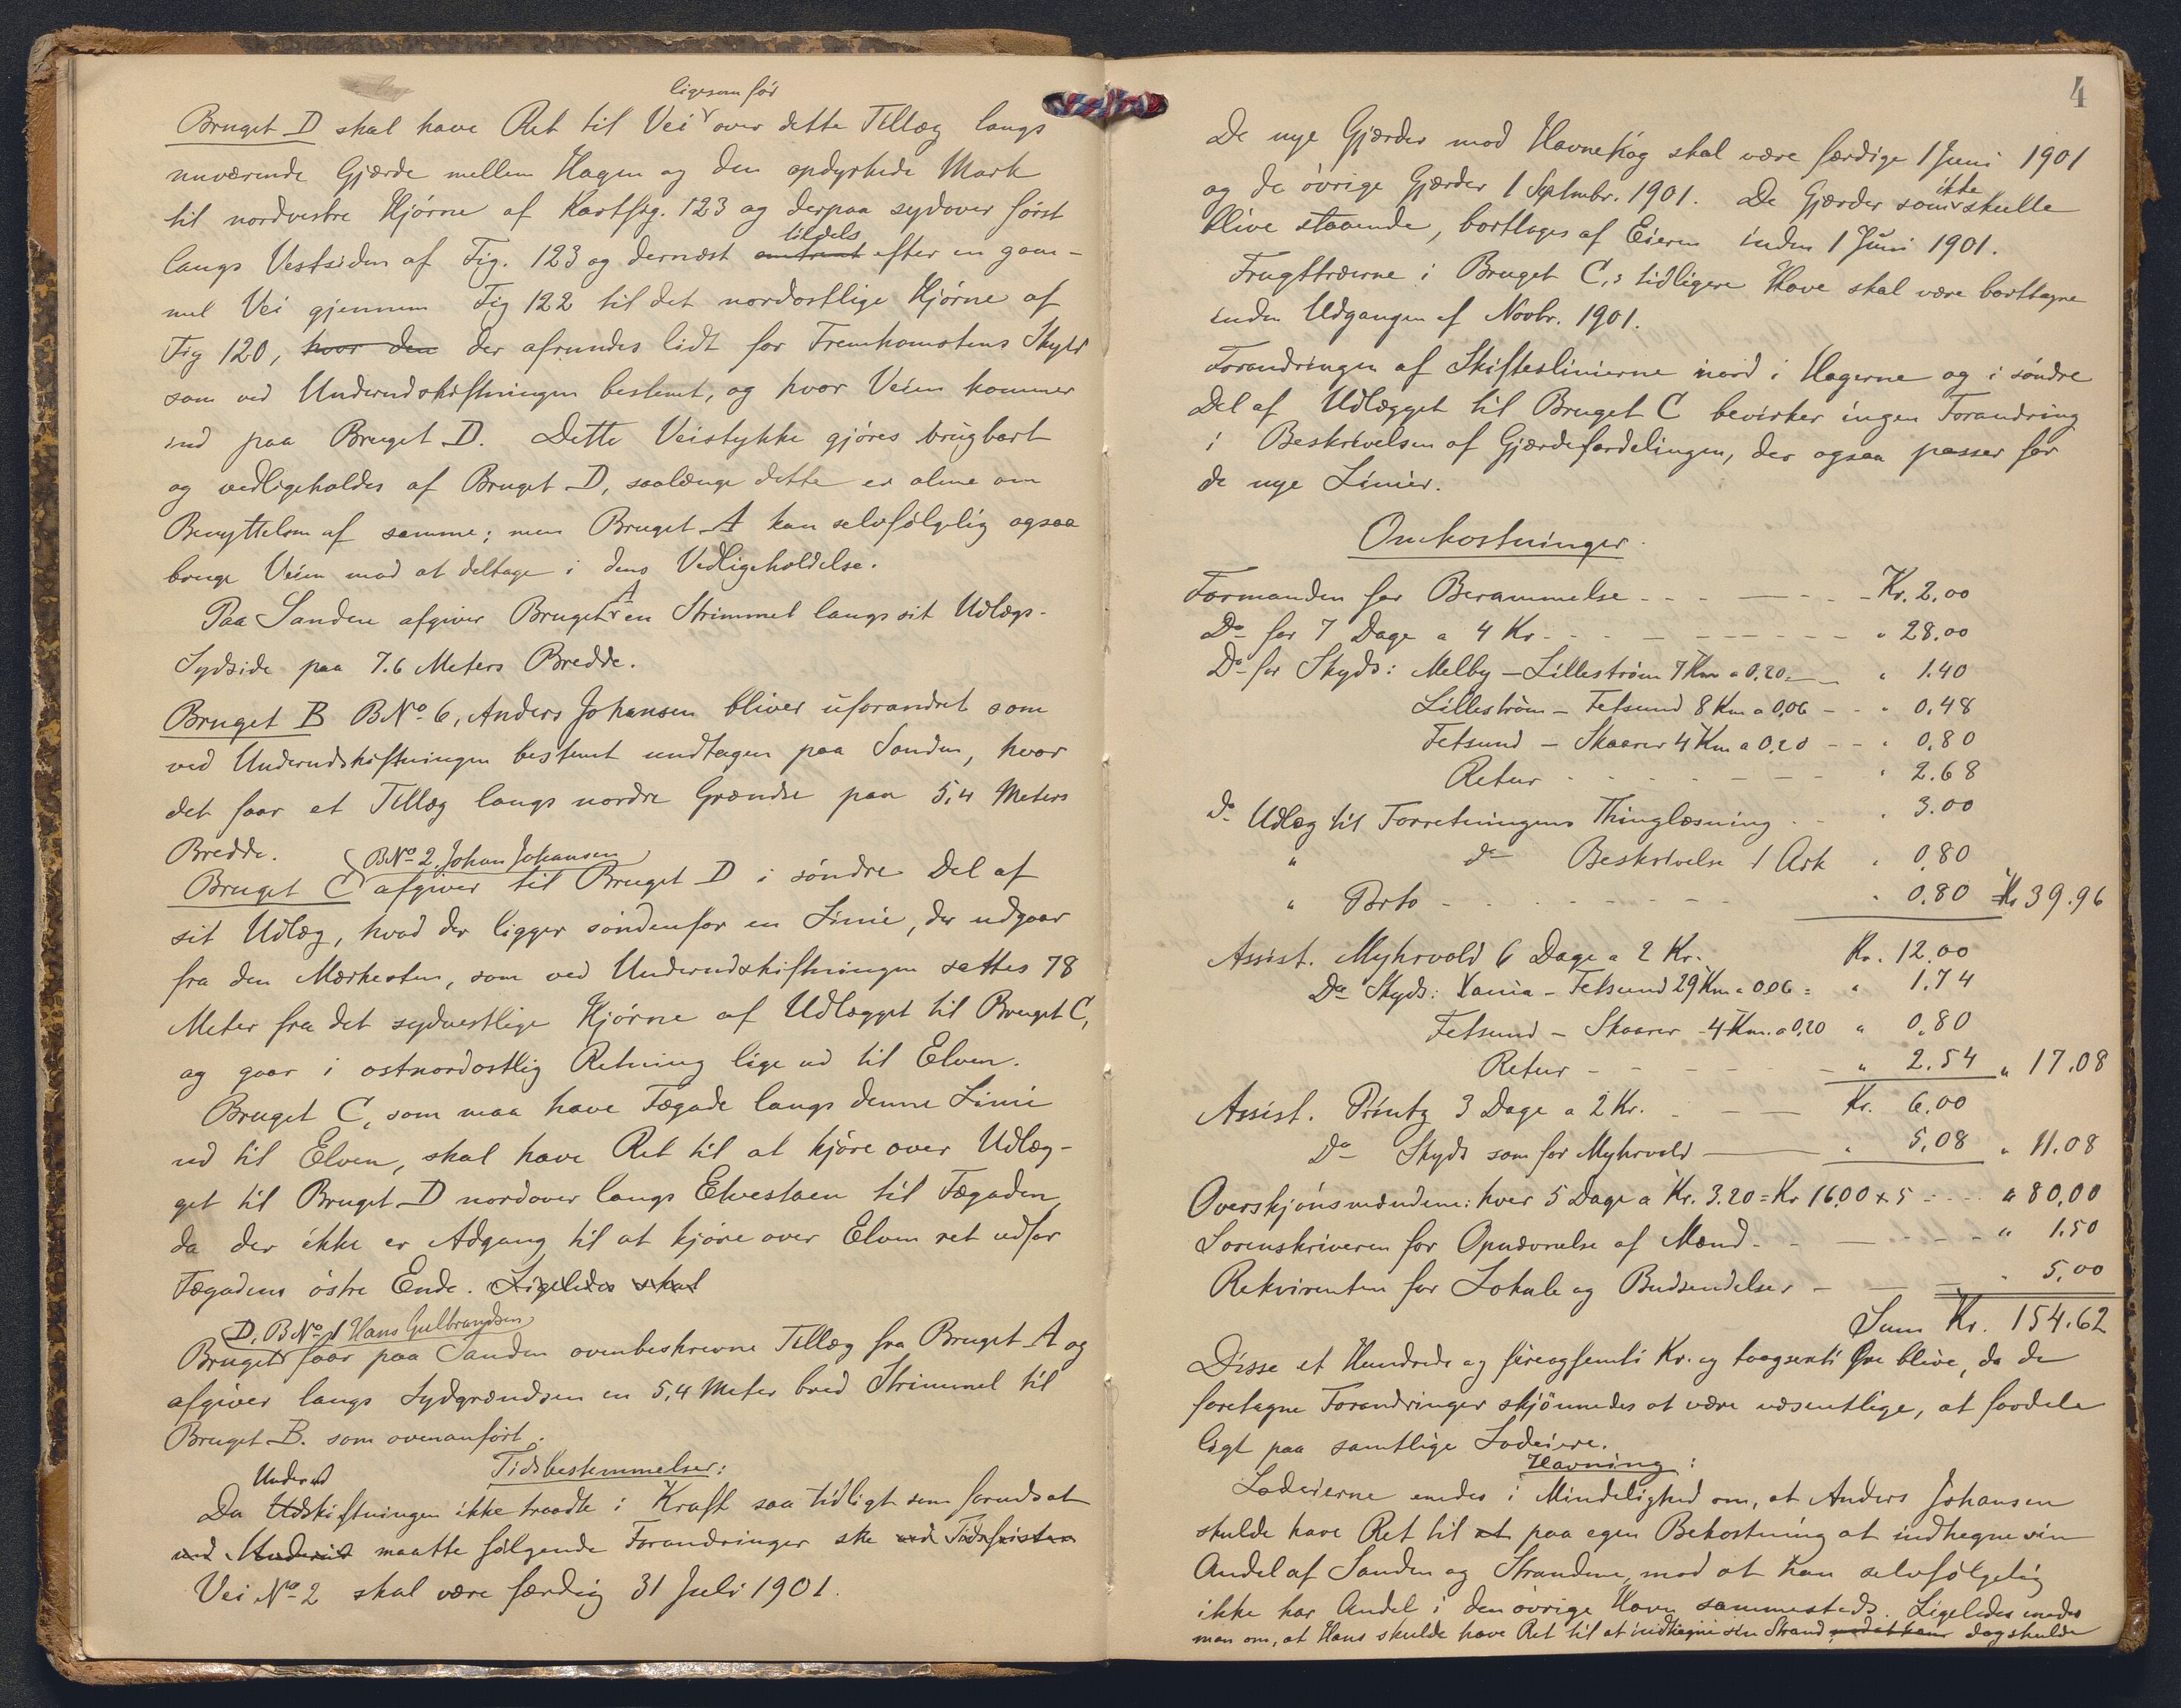 ligesom før
Bruget D skal have Ret til Vei over dette Tillæg langs
nuværende Gjærde mellem Hagen og den opdyrkede Mark
til nordvestre Hjørne af Kartfig. 123 og derpaa sydover først
tildels
langs Vestsiden af Fig. 123 og dernæst omtrent efter en gam-
mel Vei gjennem Fig 122 til det nordostlige Hjørne af
Fig 120, hvor den der afrundes lidt for Fremkomstens Skyld
som ved Underudskiftningen bestemt, og hvor Veien kommer
ind paa Bruget D. Dette Veistykke gjøres brugbart
og vedligeholdes af Bruget D, saalænge dette er alene om
Benyttelsen af samme; men Bruget A kan selvfølgelig ogsaa
bruge Veien mod at deltage i dens Vedligeholdelse.
A
Paa Sanden afgiver Bruget en Strimmel langs sit Udlægs
Sydside paa 7.6 Meters Bredde.
Bruget B BNo 6, Anders Johansen bliver uforandret som
ved Underudskiftningen bestemt undtagen paa Sanden, hvor
det faar et Tillæg langs nordre Grændse paa 5,4 Meters
Bredde.
BNo 2. Johan Johansen
Bruget C afgiver til Bruget D i søndre Del af
sit Udlæg, hvad der ligger søndenfor en Linie, der udgaar
fra den Mærkesten, som ved Underudskiftningen sattes 78
Meter fra det sydvestlige Hjørne af Udlægget til Bruget C,
og gaar i ostnordostlig Retning lige ud til Elven.
Bruget C, som maa have Fægade langs denne Linie
ud til Elven, skal have Ret til at kjøre over Udlæg-
get til Bruget D nordover langs Elvestaen til Fægaden,
da der ikke er Adgang til at kjøre over Elven ret udfor
Fægadens østre Ende. Ligeledes skal
D, BNo 1 Hans Gulbrandsen
Bruget faar paa Sanden ovenbeskrevne Tillæg fra Bruget A og
afgiver langs Sydgrændsen en 5,4 Meter bred Strimmel til
Bruget B. som ovenanført.
Tidsbestemmelser:
Underud
Da Udskiftningen ikke traadte i Kraft saa tidligt som forudsat
ved Underud maatte følgende Forandringer ske ved Tidsfristen
Vei No 2 skal være færdig 31 Juli 1901.
4
De nye Gjærder mod Havnehag skal være færdige 1 Juni 1901
og de øvrige Gjærder 1 Septmbr. 1901. De Gjærder som skulle
ikke
blive staaende, borttages af Eieren inden 1 Juni 1901.
Frugttræerne i Bruget C,s tidligere Have skal være borttagne
inden Udgangen af Novbr. 1901.
Forandringen af Skifteslinierne nord i Hagerne og i søndre
Del af Udlægget til Bruget C bevirker ingen Forandring
i Beskrivelsen af Gjærdefordelingen, der ogsaa passer for
de nye Linier.
Omkostninger.
Formanden for Berammelse - - - Kr. 2,00
Do for 7 Dage a 4 Kr. - - - " 28,00
Do for Skyds: Melby - Lillestrøm 7 Km a 0,20 = " 1.40
Lillestrøm - Fetsund 8 Km a 0,06 - - " 0,48
Fetsund - Skaarer 4 Km a 0,20 - - " 0,80
Retur - - - " 2.68
do Udlæg til Forretningens Thinglæsning - - " 3.00
" do Beskrivelse 1 Ark " 0,80
" Porto - - - " 0,80 Kr 39.96
Assist. Myhrvold 6 Dage a 2 Kr. Kr. 12,00
Do Skyds: Xania - Fetsund 29 Km a 0,06 = " 1.74
Fetsund - Skaarer - 4 Km. a 0,20 " 0,80
Retur - - - " 2.54 " 17.08
Assist. Printz 3 Dage a 2 Kr. - - Kr. 6,00
Do Skyds som for Myhrvold - " 5,08 " 11.08
Overskjønsmændene: hver 5 Dage a Kr. 3.20 = Kr 16,00 x 5 - - " 80,00
Sorenskriveren for Opnævnelse af Mænd - - " 1.50
Rekvirenten for Lokale og Budsendelser - - " 5,00
Sum Kr. 154.62
Disse et Hundrede og fireogfemti Kr. og toogsexti Øre blive, da de
foretagne Forandringer skjønnedes at være væsentlige, at fordele
ligt paa samtlige Lodeiere.
Havning:
Lodeierne enedes i Mindelighed om, at Anders Johansen
skulde have Ret til at paa egen Bekostning at indhegne sin
Andel af Sanden og Strandene, mod at han selvfølgelig
ikke har Andel i den øvrige Havn sammesteds. Ligeledes enedes
man om, at Hans skulde have Ret til at indhegne sin Strand mod at han dog skulde